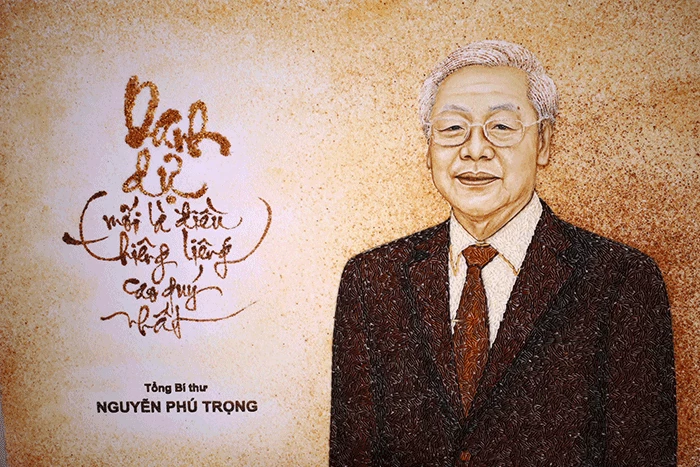 Danh
dự
mới là điều
thiêng liêng
cao quý
nhất
Tổng Bí thư
NGUYỄN PHÚ TRỌNG